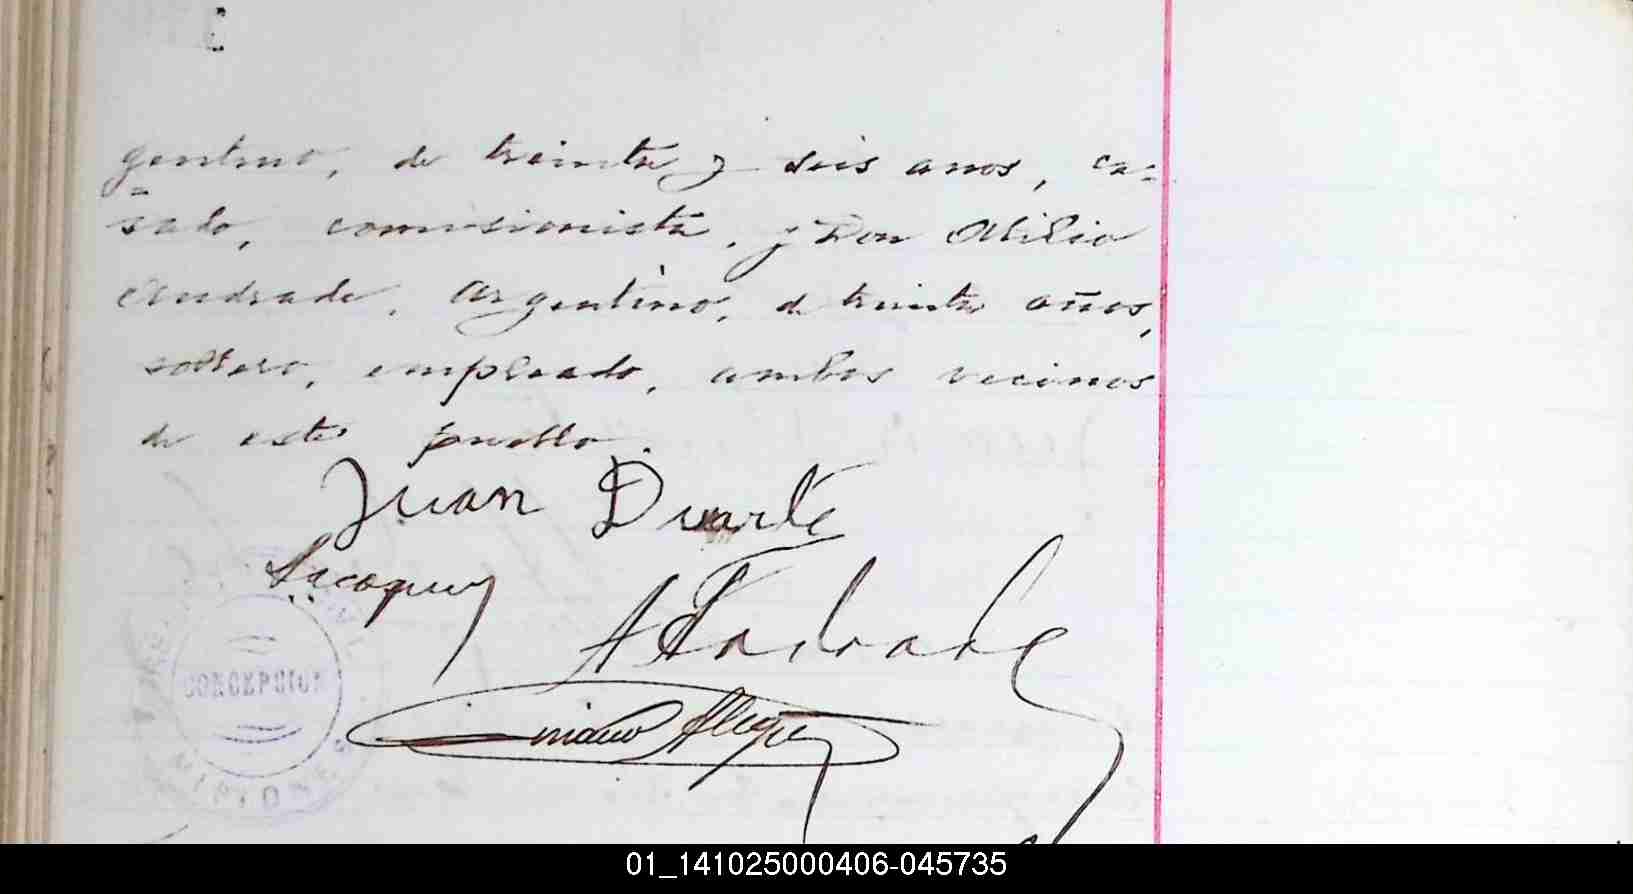 gentino, de treinta y seis anos, ca=
=sado, comisionista, y Don Abilio
Andrade, Argentino, de treinta años,
soltero, empleado, ambos vecinos
de este pueblo.
Juan Duarte
A Andrade
Alegre
CONCEPCION
MISIONES
01_141025000406-045735